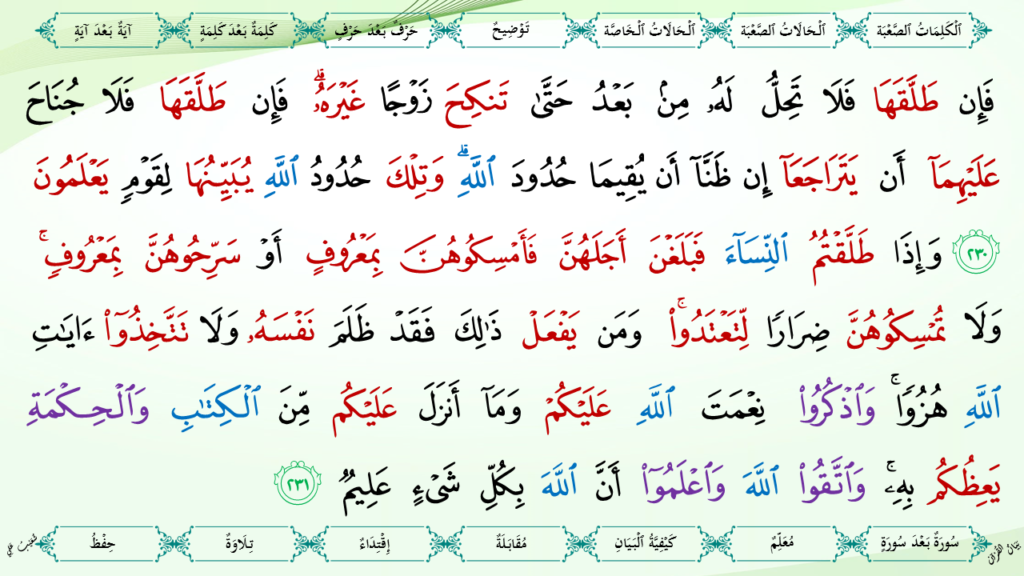 اَلْكَلِمَاتُ الصَّعْبَة اَلْحَالَاتُ الصَّعْبَة اَلْحَالَاتُ الْخَاصَّة تَوْضِيحٌ حَرْفٌ بَعْدَ حَرْفٍ كَلِمَةٌ بَعْدَ كَلِمَةٍ آيَةٌ بَعْدَ آيَةٍ
فَإِن طَلَّقَهَا فَلَا تَحِلُّ لَهُۥ مِنۢ بَعْدُ حَتَّىٰ تَنكِحَ زَوْجًا غَيْرَهُۥۗ فَإِن طَلَّقَهَا فَلَا جُنَاحَ
عَلَيْهِمَآ أَن يَتَرَاجَعَآ إِن ظَنَّآ أَن يُقِيمَا حُدُودَ ٱللَّهِۗ وَتِلْكَ حُدُودُ ٱللَّهِ يُبَيِّنُهَا لِقَوْمٍ يَعْلَمُونَ
٢٣٠ وَإِذَا طَلَّقْتُمُ ٱلنِّسَآءَ فَبَلَغْنَ أَجَلَهُنَّ فَأَمْسِكُوهُنَّ بِمَعْرُوفٍ أَوْ سَرِّحُوهُنَّ بِمَعْرُوفٍۚ
وَلَا تُمْسِكُوهُنَّ ضِرَارًا لِّتَعْتَدُوا۟ۚ وَمَن يَفْعَلْ ذَٰلِكَ فَقَدْ ظَلَمَ نَفْسَهُۥ وَلَا تَتَّخِذُوٓا۟ ءَايَـٰتِ
ٱللَّهِ هُزُوًاۚ وَٱذْكُرُوا۟ نِعْمَتَ ٱللَّهِ عَلَيْكُمْ وَمَآ أَنزَلَ عَلَيْكُم مِّنَ ٱلْكِتَـٰبِ وَٱلْحِكْمَةِ
يَعِظُكُم بِهِۦۚ وَٱتَّقُوا۟ ٱللَّهَ وَٱعْلَمُوٓا۟ أَنَّ ٱللَّهَ بِكُلِّ شَىْءٍ عَلِيمٌ ٢٣١
سُورَةٌ بَعْدَ سُورَةٍ مُعَلِّمٌ كَيْفِيَّةُ الْبَيَانِ مُقَابَلَةٌ اِقْتِدَاءٌ تِلَاوَةٌ حِفْظُ